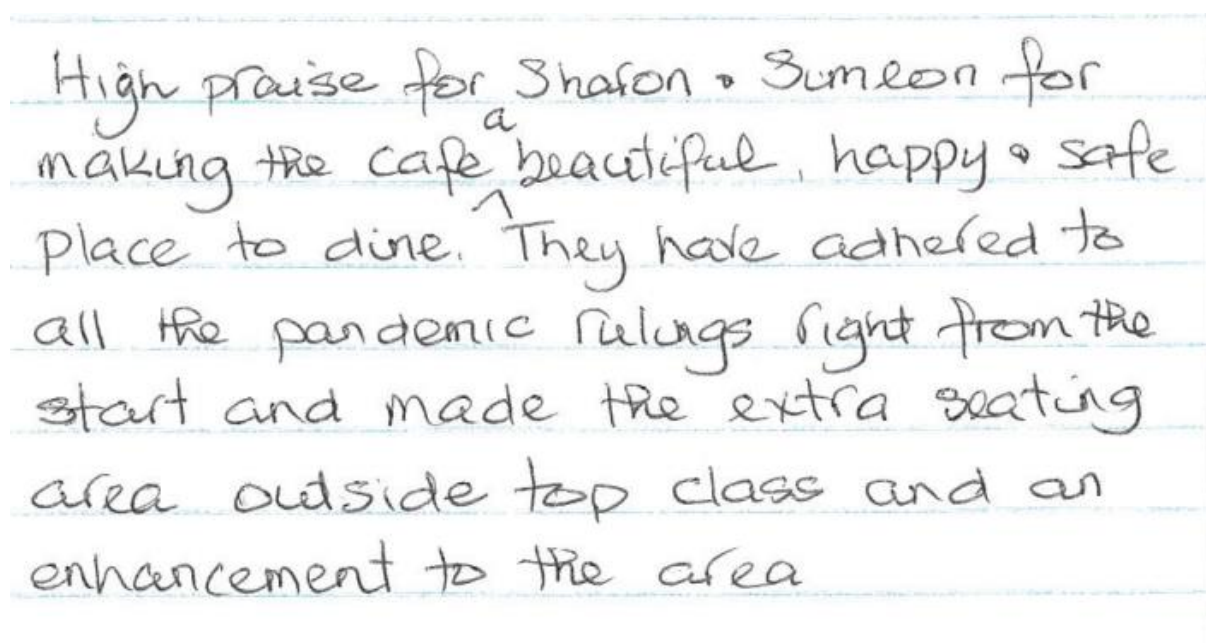 High praise for Sharon & Simeon for
making the cafe a beautiful, happy & safe
place to dine. They have adhered to
all the pandemic rulings right from the
start and made the extra seating
area outside top class and an
enhancement to the area